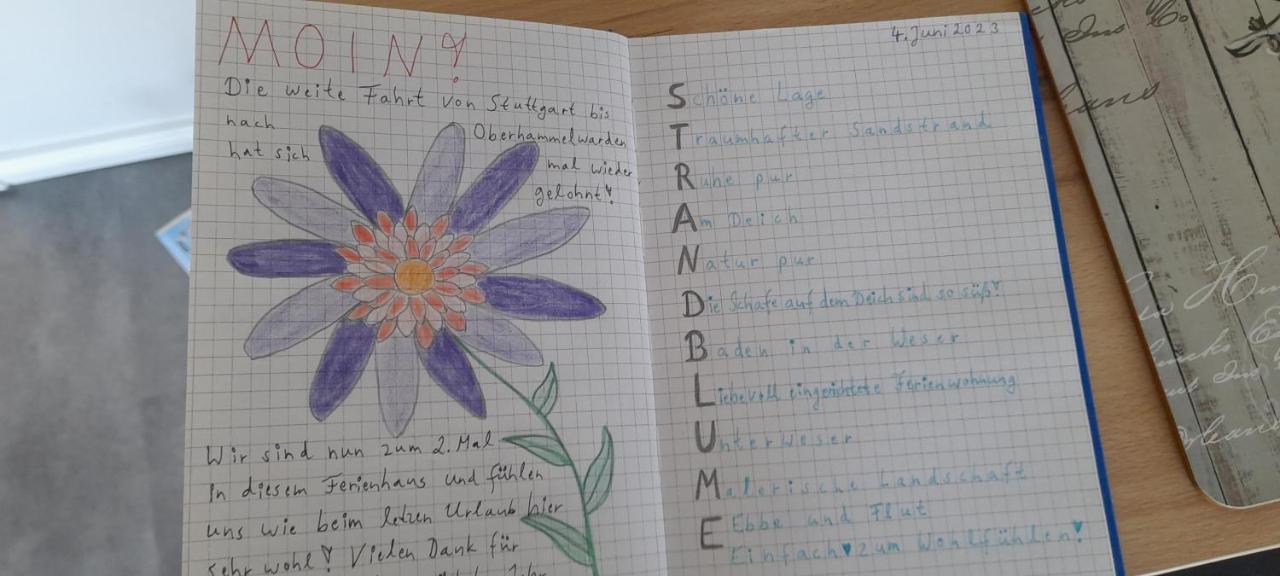 MOIN!
Die weite Fahrt von Stuttgart bis
nach Oberhammelwarden
hat sich mal wieder
gelohnt!
Wir sind nun zum 2. Mal
in diesem Ferienhaus und fühlen
uns wie beim letzen Urlaub hier
sehr wohl! Vielen Dank für
4. Juni 2023
Schöne Lage
Traumhafter Sandstrand
Ruhe pur
Am Deich
Natur pur
Die Schafe auf dem Deich sind so süß!
Baden in der Weser
Liebevoll eingerichtete Ferienwohnung
Unterweser
Malerische Landschaft
Ebbe und Flut
Einfach♥zum Wohlfühlen!